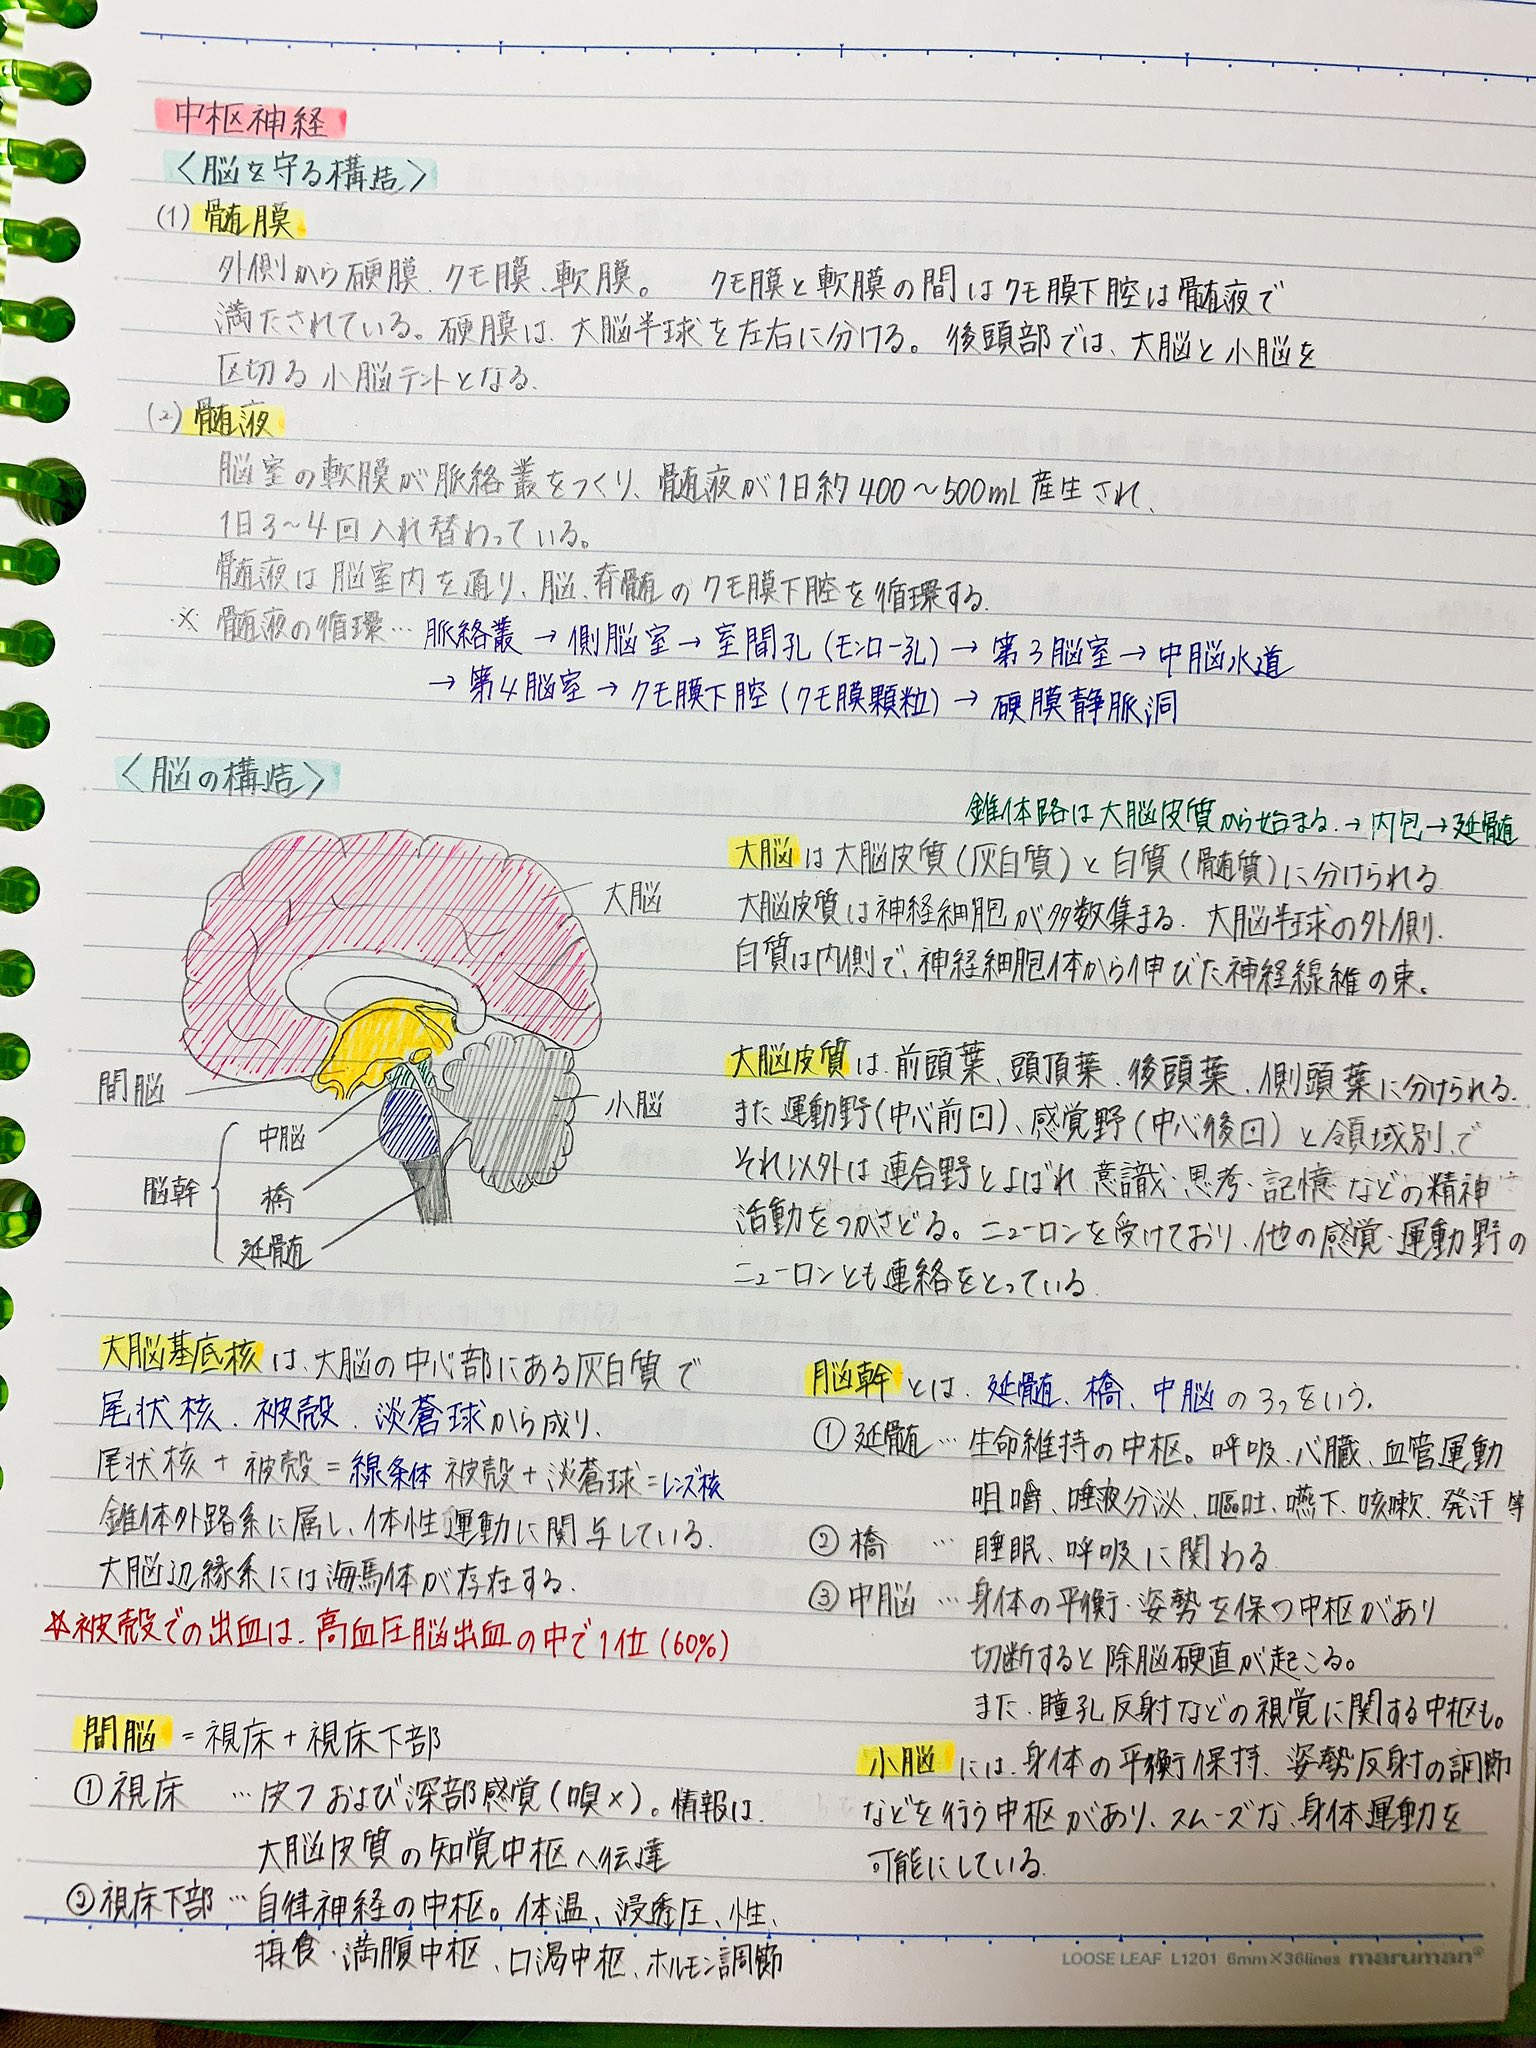 中枢神経
〈脳を守る構造〉
(1) 髄膜
外側から硬膜、クモ膜、軟膜。 クモ膜と軟膜の間はクモ膜下腔は髄液で
満たされている。硬膜は、大脳半球を左右に分ける。後頭部では、大脳と小脳を
区切る小脳テントとなる。
(2) 髄液
脳室の軟膜が脈絡叢をつくり、髄液が1日約400〜500mL産生され、
1日3〜4回入れ替わっている。
髄液は脳室内を通り、脳、脊髄のクモ膜下腔を循環する。
※ 髄液の循環… 脈絡叢 → 側脳室 → 室間孔(モンロー孔) → 第3脳室 → 中脳水道
→ 第4脳室 → クモ膜下腔(クモ膜顆粒) → 硬膜静脈洞
〈脳の構造〉
錐体路は大脳皮質から始まる。→ 内包 → 延髄
大脳は大脳皮質(灰白質)と白質(髄質)に分けられる
大脳皮質は神経細胞が多数集まる。大脳半球の外側。
白質は内側で、神経細胞体から伸びた神経線維の束。
大脳
間脳
小脳
中脳
脳幹
橋
延髄
大脳皮質は、前頭葉、頭頂葉、後頭葉、側頭葉に分けられる。
また運動野(中心前回)、感覚野(中心後回)と領域別で
それ以外は連合野とよばれ 意識・思考・記憶などの精神
活動をつかさどる。ニューロンを受けており、他の感覚・運動野の
ニューロンとも連絡をとっている。
大脳基底核は、大脳の中心部にある灰白質で
尾状核、被殻、淡蒼球から成り、
尾状核+被殻=線条体 被殻+淡蒼球=レンズ核
錐体外路系に属し、体性運動に関与している。
大脳辺縁系には海馬体が存在する。
☆被殻での出血は、高血圧脳出血の中で1位(60%)
間脳 = 視床 + 視床下部
① 視床 … 皮フおよび深部感覚(嗅×)。情報は、
大脳皮質の知覚中枢へ伝達
② 視床下部 … 自律神経の中枢。体温、浸透圧、性、
摂食・満腹中枢、口渇中枢、ホルモン調節
脳幹とは、延髄、橋、中脳の3つをいう。
① 延髄 … 生命維持の中枢。呼吸、心臓、血管運動
咀嚼、唾液分泌、嘔吐、嚥下、咳嗽、発汗 等
② 橋 … 睡眠、呼吸に関わる
③ 中脳 … 身体の平衡・姿勢を保つ中枢があり
切断すると除脳硬直が起こる。
また、瞳孔反射などの視覚に関する中枢も。
小脳には、身体の平衡保持、姿勢反射の調節
などを行う中枢があり、スムーズな身体運動を
可能にしている。
LOOSE LEAF L1201 6mm×36lines maruman®